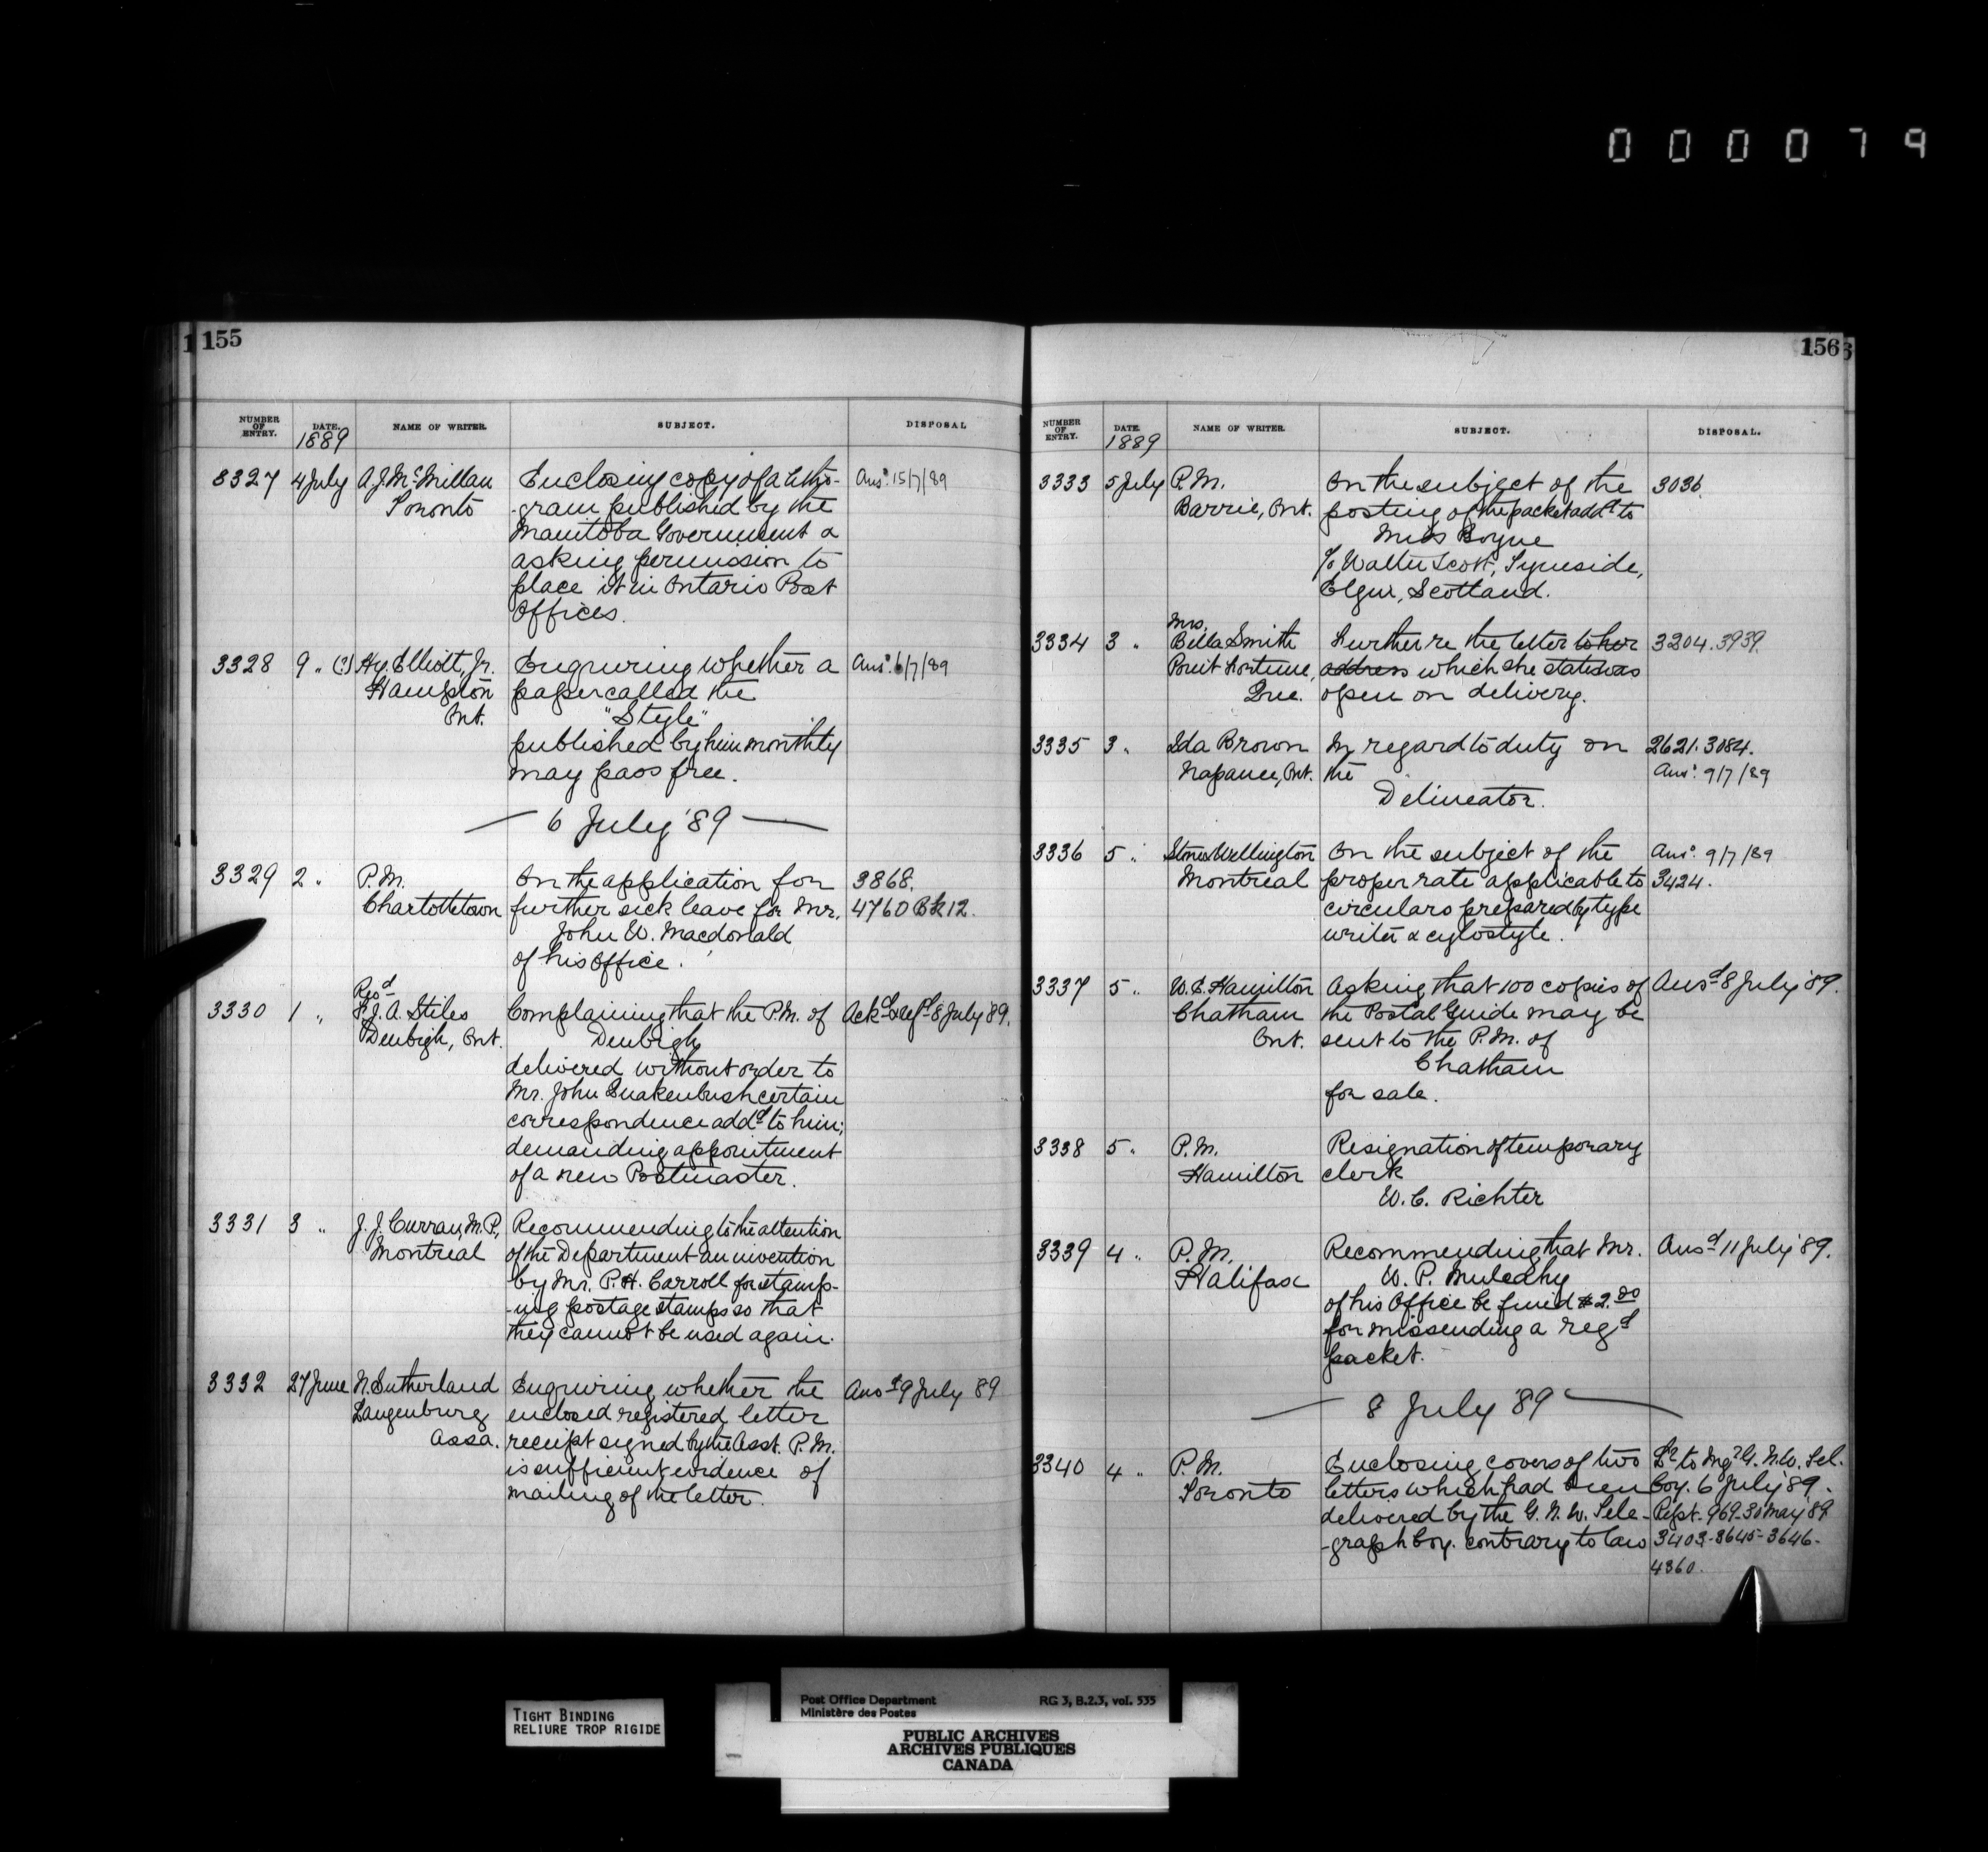 0 0 0 0 7 9
155
NUMBER OF ENTRY. DATE. NAME OF WRITER. SUBJECT. DISPOSAL
1889
3327 4 July A. J. McMillan Enclosing copy of a litho- Ansd. 15/7/89
Toronto -gram published by the
Manitoba Government &
asking permission to
place it in Ontario Post
Offices.
3328 9 " (?) Hy. Elliott, Jr. Enquiring whether a Ansd. 6/7/89
Hampton paper called the
Ont. "Style"
published by him monthly
may pass free.
— 6 July '89 —
3329 2 " P.M. On the application for 3868.
Charlottetown further sick leave for Mr. 4760 Bk 12.
John W. Macdonald
of his Office.
3330 1 " Revd
F. J. A. Stiles Complaining that the P.M. of Ackd & refd 8 July '89.
Denbigh, Ont. Denbigh
delivered without order to
Mr. John Quakenbush certain
correspondence addd to him;
demanding appointment
of a new Postmaster.
3331 3 " J. J. Curran, M.P., Recommending to the attention
Montreal of the Department an invention
by Mr. P. H. Carroll for stamp-
-ing postage stamps so that
they cannot be used again.
3332 27 June N. Sutherland Enquiring whether the Ansd 9 July 89
Langenburg enclosed registered letter
Assa. receipt signed by the Asst. P.M.
is sufficient evidence of
mailing of the letter.
156
NUMBER OF ENTRY. DATE. NAME OF WRITER. SUBJECT. DISPOSAL.
1889
3333 5 July P.M. On the subject of the 3036.
Barrie, Ont. posting of the packet addd to
Miss Boyne
c/o Walter Scott, Tyneside,
Elgin, Scotland.
3334 3 " Mrs.
Bella Smith Further re the letter to her 3204. 3939.
Point Fortune, address which she states was
Que. open on delivery.
3335 3 " Ida Brown In regard to duty on 2621. 3084.
Napanee, Ont. the Ansd. 9/7/89
Delineator.
3336 5 " Stone & Wellington On the subject of the Ansd. 9/7/89
Montreal proper rate applicable to 3424.
circulars prepared by type
writer & cylostyle.
3337 5 " W. E. Hamilton Asking that 100 copies of Ansd 8 July '89.
Chatham the Postal Guide may be
Ont. sent to the P.M. of
Chatham
for sale.
3338 5 " P.M. Resignation of temporary
Hamilton clerk
W. C. Richter
3339 4 " P.M. Recommending that Mr. Ansd 11 July '89.
Halifax W. P. Mulcahy
of his Office be fined $2.00
for missending a regd
packet.
— 8 July '89 —
3340 4 " P.M. Enclosing covers of two Lr to Mgr G. N. W. Tel.
Toronto letters which had been Coy. 6 July '89.
delivered by the G. N. W. Tele- Rept. 969-30 May 89
-graph Coy. contrary to law 3403-3645-3646-
4360.
TIGHT BINDING
RELIURE TROP RIGIDE
Post Office Department RG 3, B.2.3, vol. 535
Ministère des Postes
PUBLIC ARCHIVES
ARCHIVES PUBLIQUES
CANADA